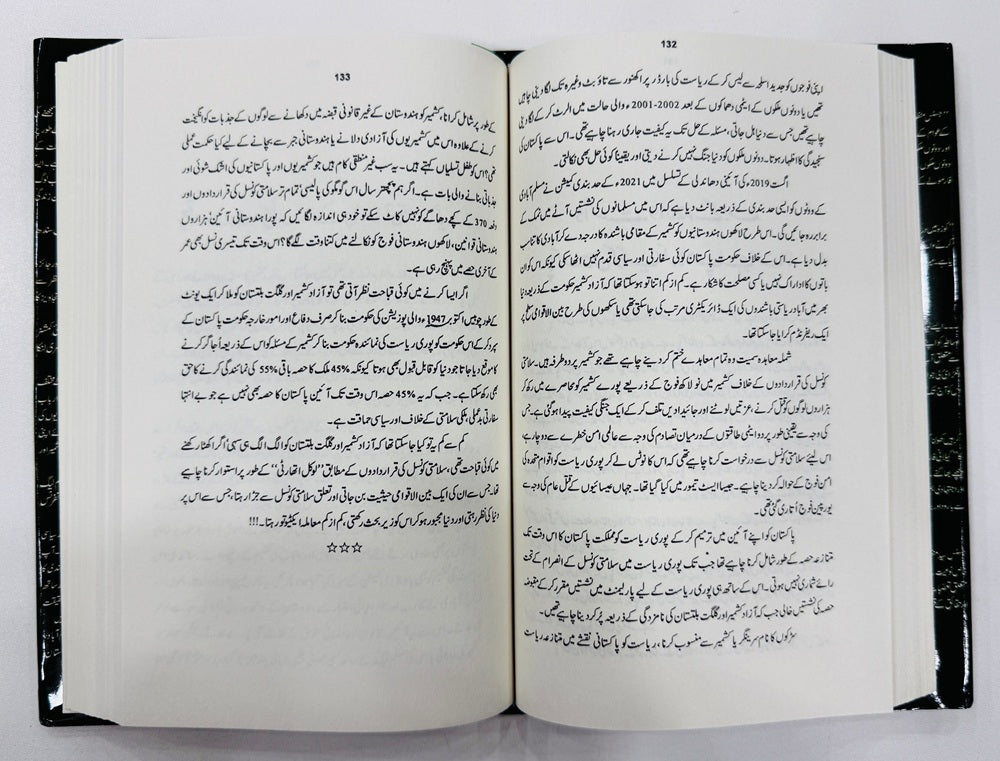 132
اپنی فوجوں کو جدید اسلحہ سے لیس کر کے ریاست کی بارڈر پر اکھنور سے تاؤ بٹ وغیرہ تک لگا دینی چاہیں
تھیں یا دونوں ملکوں کے ایٹمی دھماکوں کے بعد 2002-2001ء والی حالت میں الرٹ کر کے لگا دینی
چاہیے تھیں جس سے دنیا ہل جاتی، مسئلہ کے حل تک یہ کیفیت جاری رہنا چاہیے تھی۔ اس سے پاکستان کی
سنجیدگی کا اظہار ہوتا۔ دونوں ملکوں کو دنیا جنگ نہیں کرنے دیتی اور یقیناً کوئی حل بھی نکالتی۔
اگست 2019ء کی آئینی دھاندلی کے تسلسل میں 2021ء کے حد بندی کمیشن نے مسلم آبادی
کے ووٹوں کو ایسی حد بندی کے ذریعہ بانٹ دیا ہے کہ اس میں مسلمانوں کی نشستیں آٹے میں نمک کے
برابر رہ جائیں گی۔ اس طرح لاکھوں ہندوستانیوں کو کشمیر کے مقامی باشندہ کا درجہ دے کر آبادی کا تناسب
بدل دیا ہے۔ اس کے خلاف حکومت پاکستان کوئی سفارتی اور سیاسی قدم نہیں اٹھا سکی کیونکہ اس کو ان
باتوں کا ادراک نہیں یا کسی مصلحت کا شکار ہے۔ کم از کم اتنا تو ہو سکتا تھا کہ آزاد کشمیر حکومت کے ذریعہ دنیا
بھر میں آباد ریاستی باشندوں کی ایک ڈائریکٹری مرتب کی جا سکتی تھی یا سکھوں کی طرح بین الاقوامی سطح پر
ایک ریفرنڈم کرایا جا سکتا تھا۔
شملہ معاہدہ سمیت وہ تمام معاہدے ختم کر دینے چاہیے تھے جو کشمیر پر دو طرفہ ہیں۔ سلامتی
کونسل کی قراردادوں کے خلاف کشمیر میں نو لاکھ فوج کے ذریعے پورے کشمیر کو محاصرے میں رکھ کر
ہزاروں لوگوں کو قتل کرنے، عزتیں لوٹنے اور جائیدادیں تلف کر کے ایک جنگی کیفیت پیدا ہو گئی ہے جس
کی وجہ سے یقینی طور پر دو ایٹمی طاقتوں کے درمیان تصادم کی وجہ سے عالمی امن خطرے سے دوچار ہے
اس لیے سلامتی کونسل سے درخواست کرنا چاہیے تھی کہ اس کا نوٹس لے کر پوری ریاست کو اقوام متحدہ کی
امن فوج کے حوالہ کر دینا چاہیے۔ جیسا ایسٹ تیمور میں کیا گیا تھا۔ جہاں عیسائیوں کے قتل عام کی وجہ سے
یورپین فوج اُتاری گئی تھی۔
پاکستان کو اپنے آئین میں ترمیم کر کے پوری ریاست کو مملکت پاکستان کا اس وقت تک
متنازعہ حصہ کے طور شامل کرنا چاہیے تھا جب تک پوری ریاست میں سلامتی کونسل کے انصرام کے تحت
رائے شماری نہیں ہوتی۔ اس کے ساتھ ہی پوری ریاست کے لیے پارلیمنٹ میں نشستیں مقرر کر کے مقبوضہ
حصہ کی نشستیں خالی جب کہ آزاد کشمیر اور گلگت بلتستان کی نامزدگی کے ذریعہ پُر کر دینا چاہیے تھیں۔
سڑکوں کا نام سرینگر یا کشمیر سے منسوب کرنا، ریاست کو پاکستانی نقشے میں متنازعہ ریاست
133
کے طور پر شامل کرانا، کشمیر کو ہندوستان کے غیر قانونی قبضہ میں دکھانے سے لوگوں کے جذبات کو انگیخت
کرنے کے علاوہ اس میں کشمیریوں کی آزادی دلانے یا ہندوستانی جبر سے بچانے کے لیے کیا حکمت عملی
تھی؟ اس کو طفل تسلیاں کہتے ہیں۔ یہ سب غیر منطقی کام ہیں جو کشمیریوں اور پاکستانیوں کی اشک شوئی اور
جذباتی بنانے والی بات ہے۔ اگر ہم پچھتر سال اس گومگو کی پالیسی تمام تر سلامتی کونسل کی قراردادوں اور
دفعہ 370 کے کچے دھاگے کو نہیں کاٹ سکے تو خود ہی اندازہ لگائیں کہ پورا ہندوستانی آئین ہزاروں
ہندوستانی قوانین، لاکھوں ہندوستانی فوج کو نکالنے میں کتنا وقت لگے گا؟ اس وقت تک تیسری نسل بھی عمر
کے آخری حصے میں پہنچ رہی ہے۔
اگر ایسا کرنے میں کوئی قباحت نظر آتی تھی تو آزاد کشمیر اور گلگت بلتستان کو ملا کر ایک یونٹ
کے طور چوبیس اکتوبر 1947ء والی پوزیشن کی حکومت بنا کر صرف دفاع اور امور خارجہ حکومت پاکستان کے
سپرد کر کے اس حکومت کو پوری ریاست کی نمائندہ حکومت بنا کر کشمیر کے مسئلہ کو اس کے ذریعہ اُجاگر کرنے
کا موقع دیا جاتا جو دنیا کو قابل قبول بھی ہوتا کیونکہ 45% ملک کا حصہ باقی 55% کی نمائندگی کرنے کا حق
بھی رکھ سکتا ہے۔ جب کہ یہ 45% حصہ اس وقت تک آئین پاکستان کا حصہ بھی نہیں ہے جو بے انتہا
سفارتی بدعملی، ملکی سلامتی کے خلاف اور سیاسی حماقت ہے۔
کم سے کم یہ تو کیا جا سکتا تھا کہ آزاد کشمیر اور گلگت بلتستان کو الگ الگ ہی سہی اگر اکھٹا رکھنے
میں کوئی قباحت تھی، سلامتی کونسل کی قراردادوں کے مطابق ”لوکل اتھارٹی“ کے طور پر استوار کرنا چاہیے
تھا، جس سے ان کی ایک بین الاقوامی حیثیت بن جاتی اور تعلق سلامتی کونسل سے جڑا رہتا، جس سے اس پر
دنیا کی نظر رہتی اور دنیا مجبور ہو کر اس کو زیر بحث رکھتی، کم از کم معاملہ ایکٹیو تو رہتا۔!!!
☆☆☆